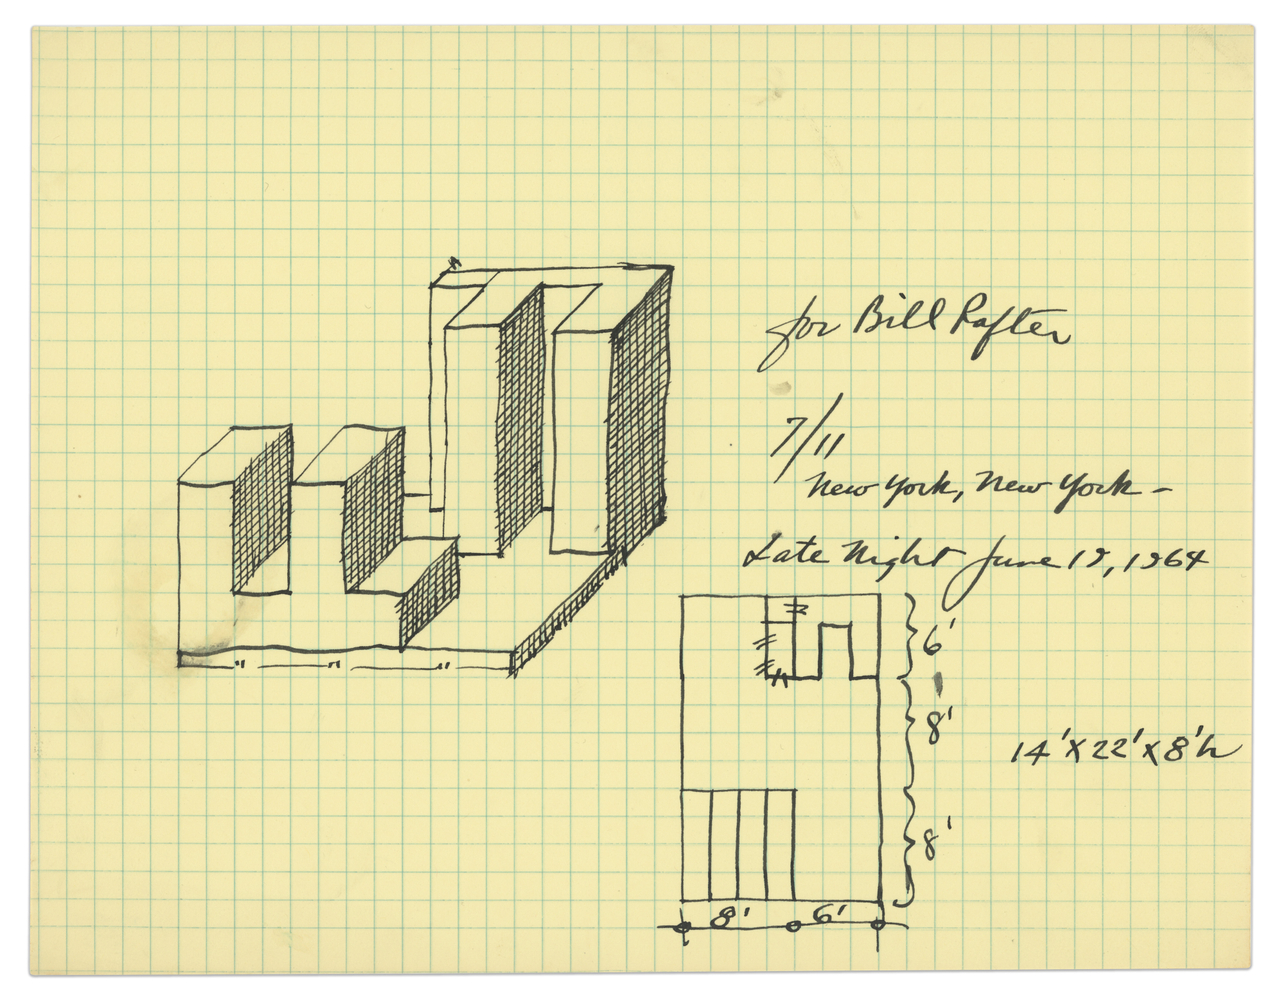 for Bill Rafter
7/11
New York, New York -
Late Night June 19, 1964
6'
8'
14' X 22' X 8'h
8'
8' 6'